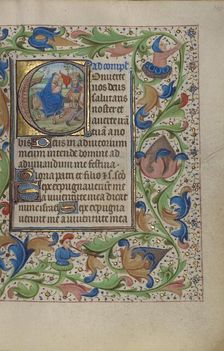 ad compl
Onuerte
nos deus
salutaris
noster et
auerte ira
tuam a no
bis Deus in adiutorium
meum intende domine ad
adiuuandum me festina
Gloria patri et filio
Sepe expugnauerunt me
a iuuentute mea dicat
nunc israel Sepe expugna
uerunt me a iuuentute mea